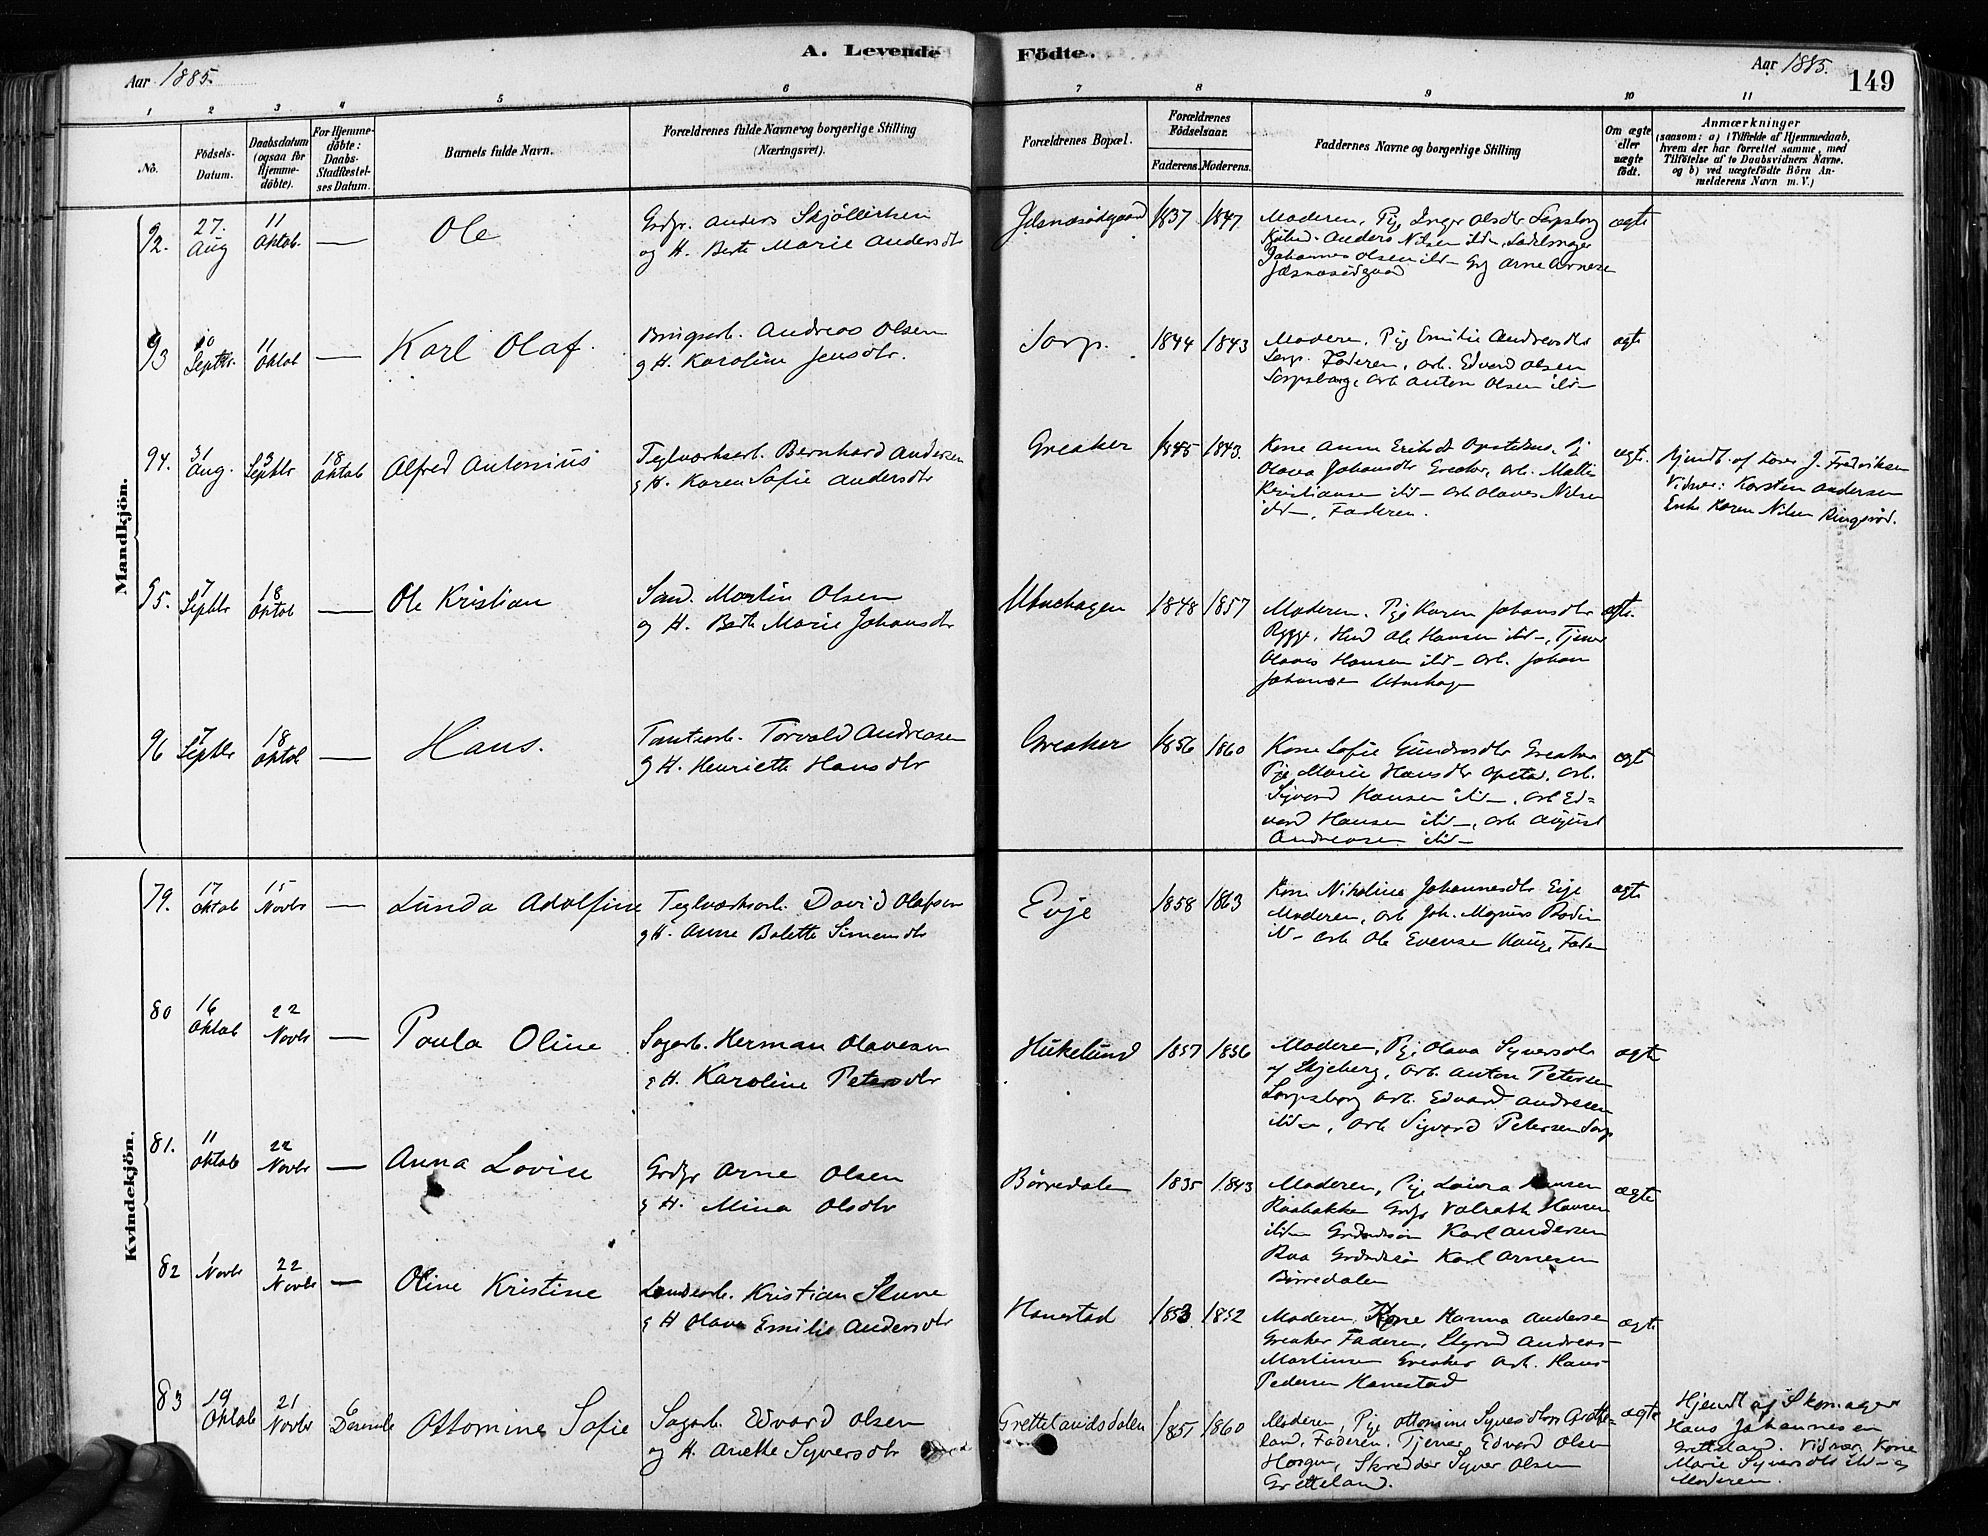 A. Levende Födte.
Aar 1885.
Aar 1885.
149
1 2 3 4 5 6 7 8 9 10 11
No.
Födsels-Datum.
Daabsdatum (ogsaa for Hjemmedöbte).
For Hjemmedöbte: Daabs-Stadfæstelses Datum.
Barnets fulde Navn.
Forældrenes fulde Navne og borgerlige Stilling (Næringsvei).
Forældrenes Bopæl.
Forældrenes Födselsaar.
Faderens. Moderens.
Faddernes Navne og borgerlige Stilling
Om ægte eller uægte födt.
Anmærkninger
(saasom: a) i Tilfælde af Hjemmedaab, hvem der har forrettet samme, med Tilföielse af to Daabsvidners Navne, og b) ved uægtefödte Börn Anmelderens Navn m. V.)
Mandkjön.
92. 27. Aug 11 Oktob — Ole
Grdbr. Anders Skjöllertsen
og H. Berte Marie Andersdtr
1837 1847
Moderen, Pige Inger Olsdtr Sarpsborg
Anders Nilsen ibd—, Sadelmager
Johannes Olsen ibd— Arne Arnesen
ægte
93 10 Septbr. 11 Oktob — Karl Olaf.
Andreas Olsen
og H. Karoline Jensdtr.
Sarp. 1844 1843
Moderen, Pige Emilie Andreasdtr
Sarp. Faderen, Arb. Edvard Olsen
Sarpsborg, Arb Anton Olsen ibd—
ægte
94. 31 Aug. 3 Septbr 18 Oktob Alfred Antonius
Teglværksarb. Bernhard Andersen
g H. Karen Sofie Andersdtr
Greaker 1845 1843.
Kone Anne
Olava Johansdtr Greaker, Arb. Martin
Kristiansen ibd— Arb Olaves Nilsen
ibd—, Faderen.
ægte.
Hjemdt. af Lærer J. Fredriksen
Vidner: Karsten Andersen
Enke Karen Nilsen Ringsrød.
95. 7 Septbr 18 Oktob — Ole Kristian
Martin Olsen
og H. Berte Marie Johansdtr
1848 1857
Moderen. Pige Karen Johansdtr
Rygge, Ole Hansen ibd—, Tjener
Olaves Hansen ibd— Arb. Johan
Johansen
ægte.
96 7 Septbr 18 Oktob — Hans.
Tomtearb. Torvald Andreasen
g H. Henriette Hansdtr
Greaker 1856 1860
Kone Sofie Gundersdtr Greaker
Pige Marie Hansdtr Arb.
Sigvard Hansen ibd—, Arb Ed=
vard Hansen ibd—, Arb August
Andreasen ibd—
ægte
Kvindekjön.
79. 17 Oktob 15 Novbr — Lunda Adolfine
Teglværksarb. David Olafsen
g H. Anne Bolette Simensdtr
Evje 1858 1863
Kone Nikoline Johannesdtr Evje
Moderen, Arb Joh. Magnus Bodin
ibd— Arb Ole Evensen Hauge Fader
ægte
80 16 Oktob 22 Novbr — Paula Oline
Sagarb. Herman Olavesen
g H. Karoline Petersdtr
Hukelund 1857 1856
Moderen, Pige Olava Syversdtr
af Skjeberg, Arb. Anton Petersen
Sarpsborg Arb. Edvard Andresen
ibd—, Arb Sigvard Petersen Sarp
ægte
81. 11 Oktob 22 Novbr — Anna Lovise
Grdbr Arne Olsen
g H. Mina Olsdtr
Børredalen 1835 1843
Moderen, Pige Laura Hansen
Raabakke Grdbr Valrath Hansen
ibd— Karl Andersen
Raa Karl Arnesen
Børredalen
ægte
82 1 Novbr 22 Novbr — Oline Kristine
Kristian
g H Olava Emilie Andersdtr
Hanestad 1853 1852
Moderen, Kone Hanna Andersen
Greaker Faderen, Andreas
Martinsen Greaker Arb. Hans
Pedersen Hanestad
ægte
83 19 Oktob 21 Novbr 6 Decembr Ottomine Sofie
Sagarb. Edvard Olsen
og H. Anette Syversdtr
Grettelandsdalen 1851 1860
Moderen, Pige Ottomine Syversdtr Grette=
land, Faderen, Tjener Edvard Olsen
Skrædder Syver Olsen
Gretteland.
ægte
Hjemdt af Skomager
Hans Johannesen
Gretteland. Vidner Kone
Marie Syversdtr ibd— og
Moderen.